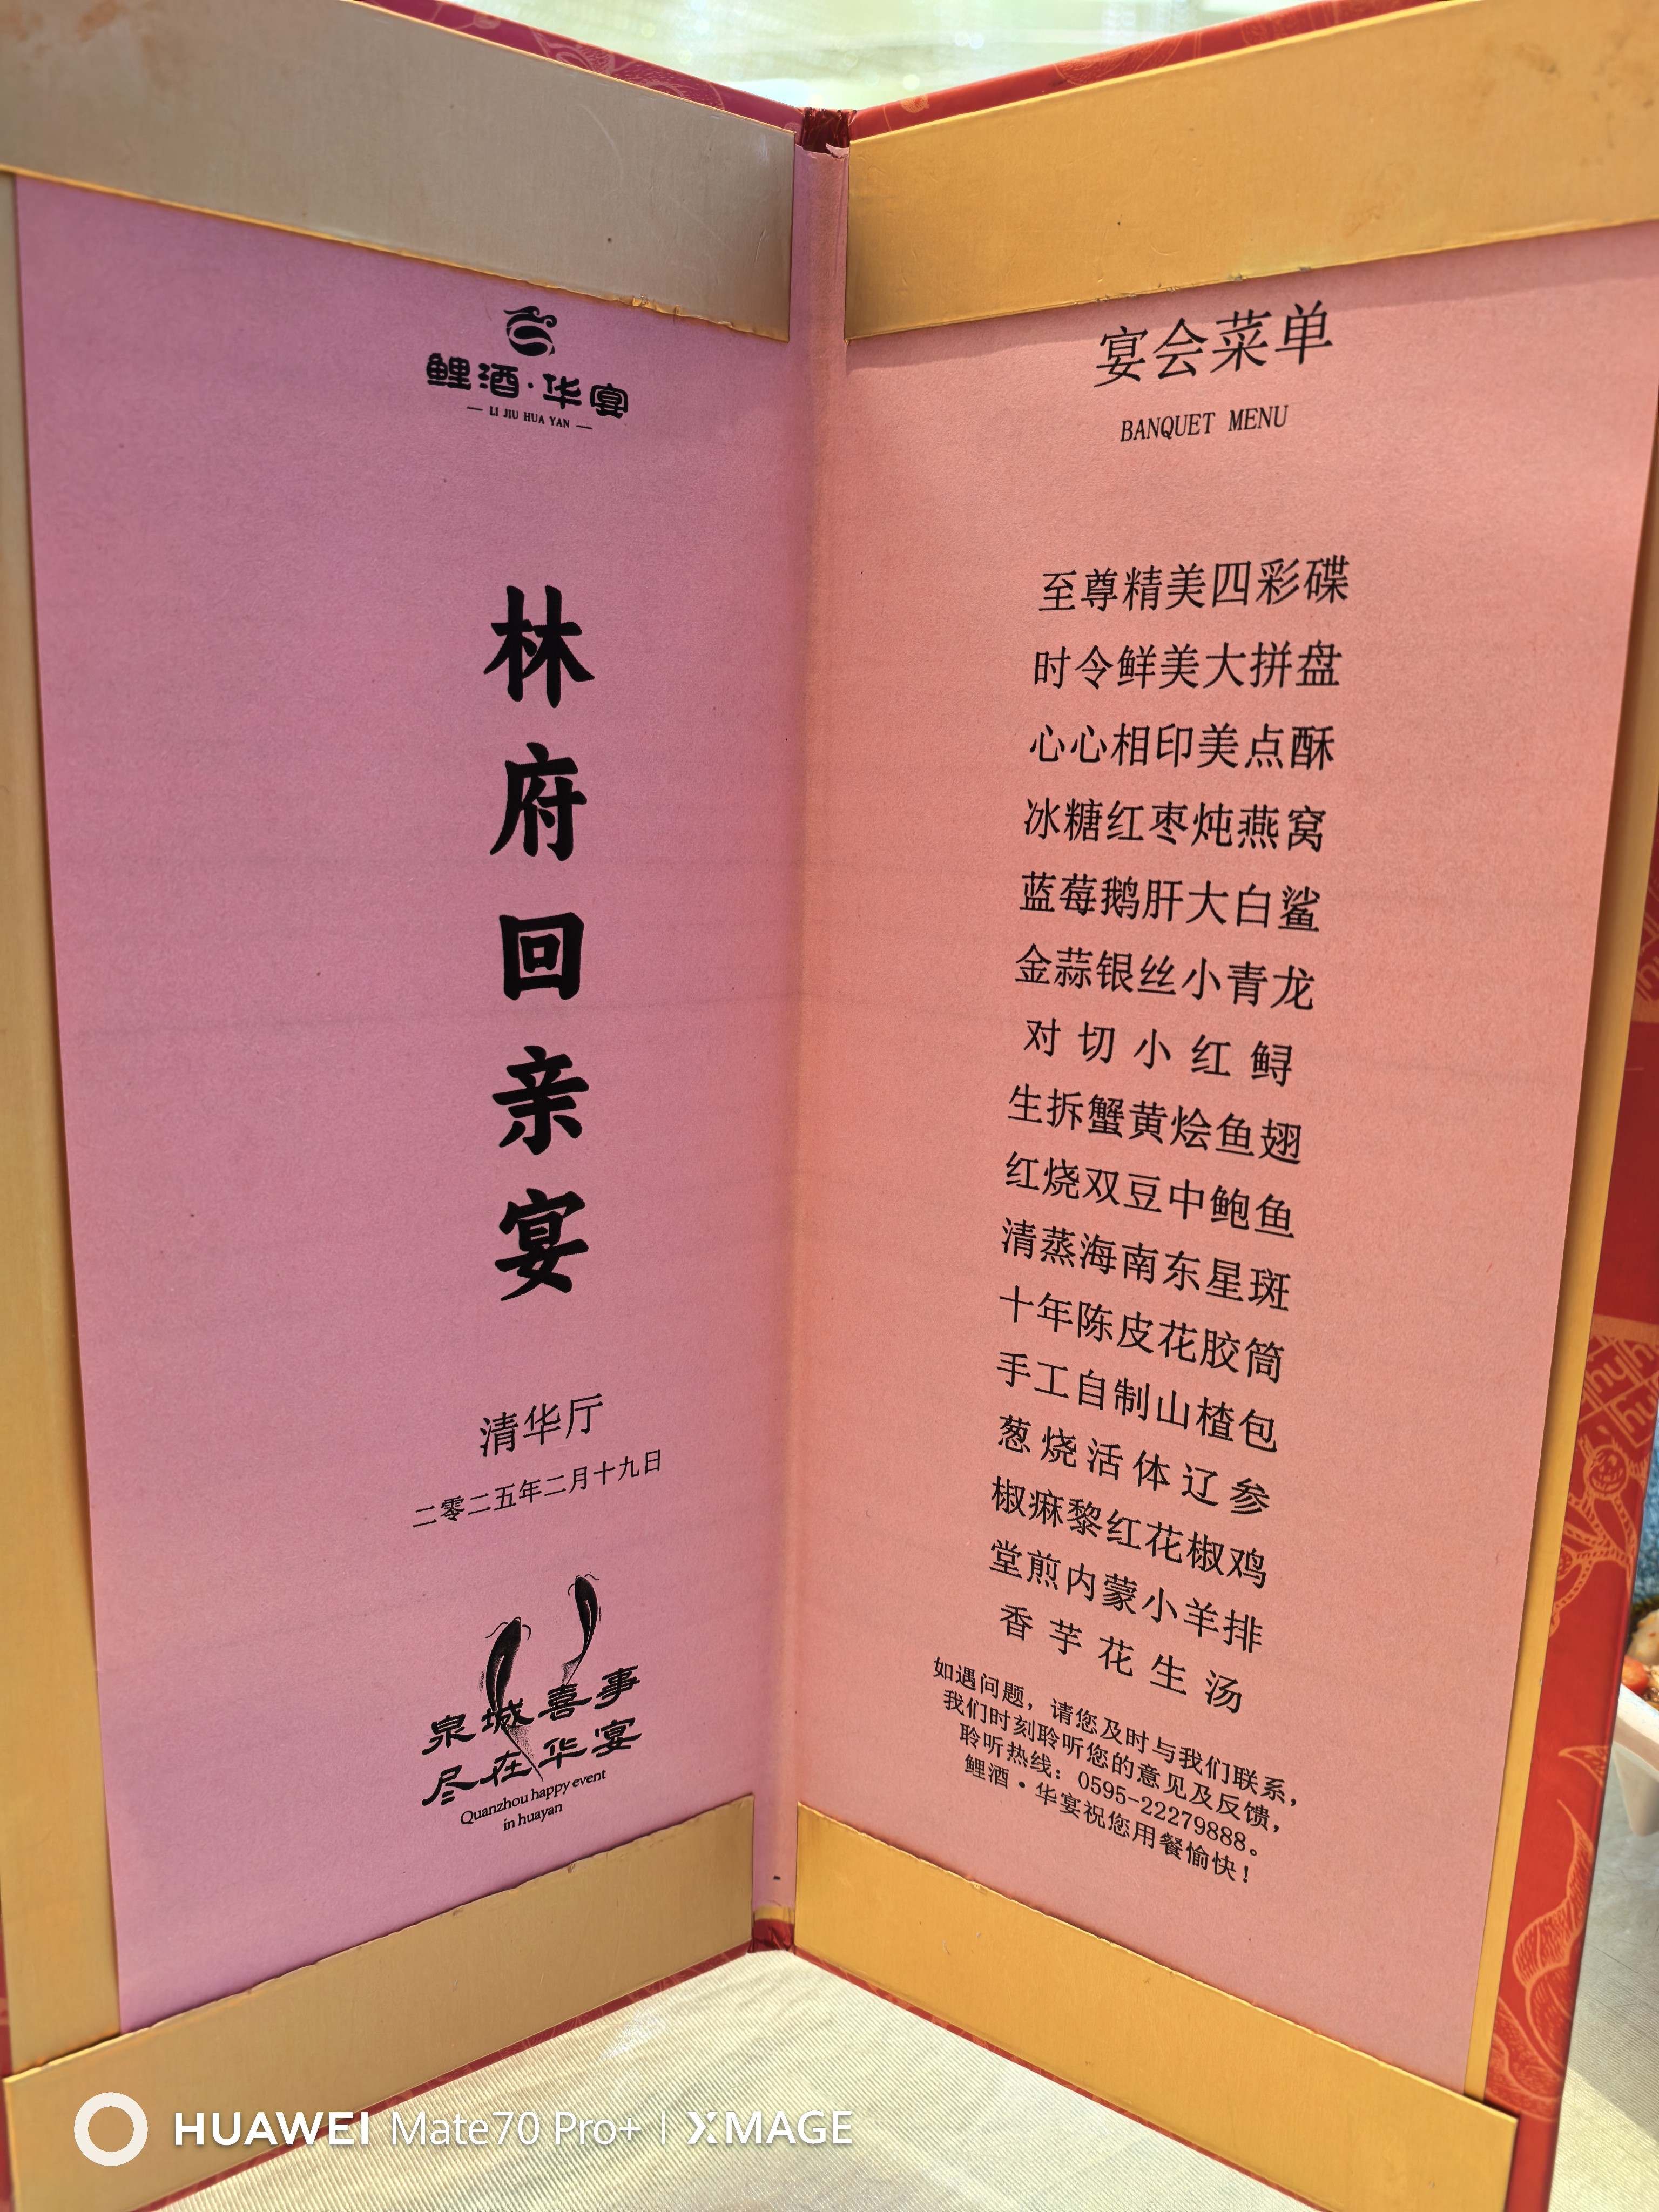 鲤酒·华宴
LI JIU HUA YAN
林府回亲宴
清华厅
二零二五年二月十九日
泉城喜事
尽在华宴
Quanzhou happy event
in huayan
宴会菜单
BANQUET MENU
至尊精美四彩碟
时令鲜美大拼盘
心心相印美点酥
冰糖红枣炖燕窝
蓝莓鹅肝大白鲨
金蒜银丝小青龙
对切小红鲟
生拆蟹黄烩鱼翅
红烧双豆中鲍鱼
清蒸海南东星斑
十年陈皮花胶筒
手工自制山楂包
葱烧活体辽参
椒麻黎红花椒鸡
堂煎内蒙小羊排
香芋花生汤
如遇问题，请您及时与我们联系，
我们时刻聆听您的意见及反馈，
聆听热线：0595-22279888。
鲤酒·华宴祝您用餐愉快！
HUAWEI Mate70 Pro+ | XMAGE